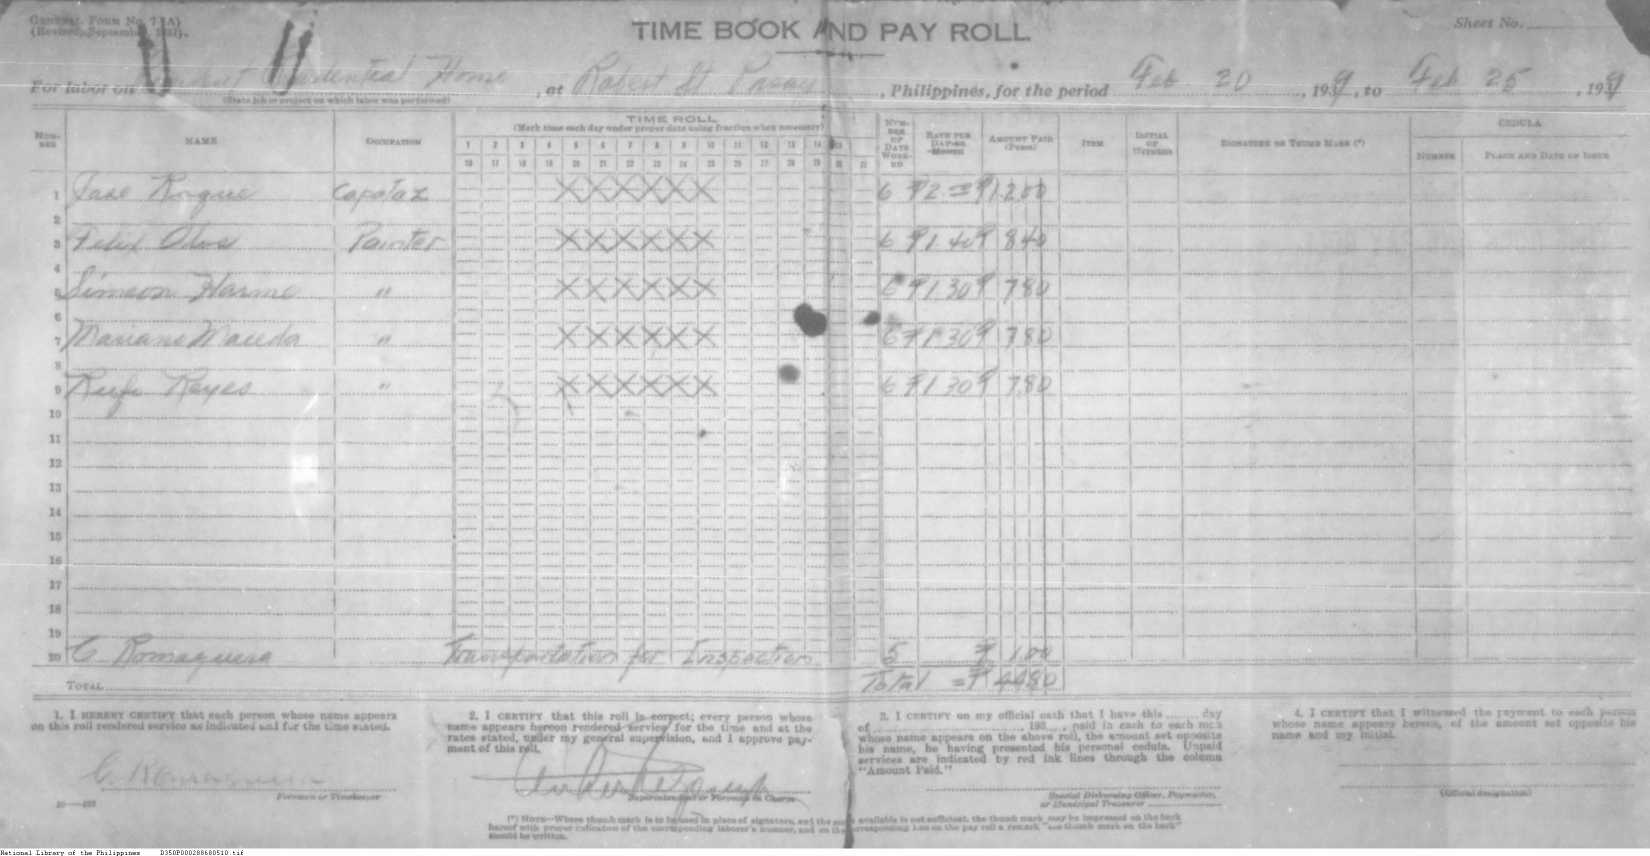 General Form No. 7(A)
(Revised, September, 1931).
TIME BOOK AND PAY ROLL
Sheet No.
For labor on President Presidential Home, at Robert St. Pasay, Philippines, for the period Feb 20, 1939, to Feb 25, 1939
(State job or project on which labor was performed)
NUMBER NAME OCCUPATION TIME ROLL NUMBER OF DAYS WORKED RATE PER DAY OR MONTH AMOUNT PAID (PESOS) ITEM INITIAL OF WITNESS SIGNATURE OR THUMB MARK (*) CEDULA
(Mark time each day under proper date using fraction when necessary)
NUMBER PLACE AND DATE OF ISSUE
1 2 3 4 5 6 7 8 9 10 11 12 13 14 15
16 17 18 19 20 21 22 23 24 25 26 27 28 29 30 31
1 Jose Roque Capataz X X X X X X 6 ₱2.= ₱12.00
2
3 Felix Painter X X X X X X 6 ₱1.40 ₱ 8.40
4
5 Simeon " X X X X X X 6 ₱1.30 ₱ 7.80
6
7 Mariano " X X X X X X 6 ₱1.30 ₱ 7.80
8
9 Rufo Reyes " X X X X X X 6 ₱1.30 ₱ 7.80
10
11
12
13
14
15
16
17
18
19
20 C. Romaguera Transportation for Inspection 5 ₱ 1.00
TOTAL Total = ₱ 44.80
1. I HEREBY CERTIFY that each person whose name appears
on this roll rendered service as indicated and for the time stated.
C. Romaguera
Foreman or Timekeeper
2. I CERTIFY that this roll is correct; every person whose
name appears hereon rendered service for the time and at the
rates stated, under my general supervision, and I approve pay-
ment of this roll.
Superintendent or Foreman in Charge
3. I CERTIFY on my official oath that I have this ........ day
of ........, 193...., paid in cash to each man
whose name appears on the above roll, the amount set opposite
his name, he having presented his personal cedula. Unpaid
services are indicated by red ink lines through the column
"Amount Paid."
Special Disbursing Officer, Paymaster,
or Municipal Treasurer
4. I CERTIFY that I witnessed the payment to each person
whose name appears hereon, of the amount set opposite his
name and my initial.
(Official designation)
(*) NOTE—Where thumb mark is to be used in place of signature, and the space available is not sufficient, the thumb mark may be impressed on the back
hereof with proper indication of the corresponding laborer's number, and on the corresponding line on the pay roll a remark "see thumb mark on the back"
should be written.
National Library of the Philippines D350P000288680510.tif